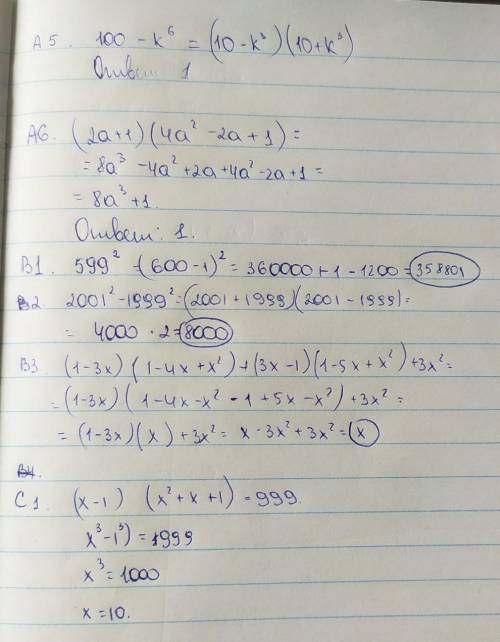 А5. 100 - k⁶ = (10 - k³)(10 + k³)
Ответ 1
А6. (2a+1)(4a² - 2a + 1) =
= 8a³ - 4a² + 2a + 4a² - 2a + 1 =
= 8a³ + 1.
Ответ: 1.
В1. 599² = (600 - 1)² = 360000 + 1 - 1200 = 358801
В2 2001² - 1999² = (2001 + 1999)(2001 - 1999) =
= 4000 · 2 = 8000
В3 (1-3x)(1-4x+x²)+(3x-1)(1-5x+x²)+3x² =
= (1-3x)(1-4x-x²-1+5x-x²)+3x² =
= (1-3x)(x)+3x² = x-3x²+3x² = x
В4
С1 (x-1) (x²+x+1) = 999.
x³-1³) = 1999
x³ = 1000
x = 10.